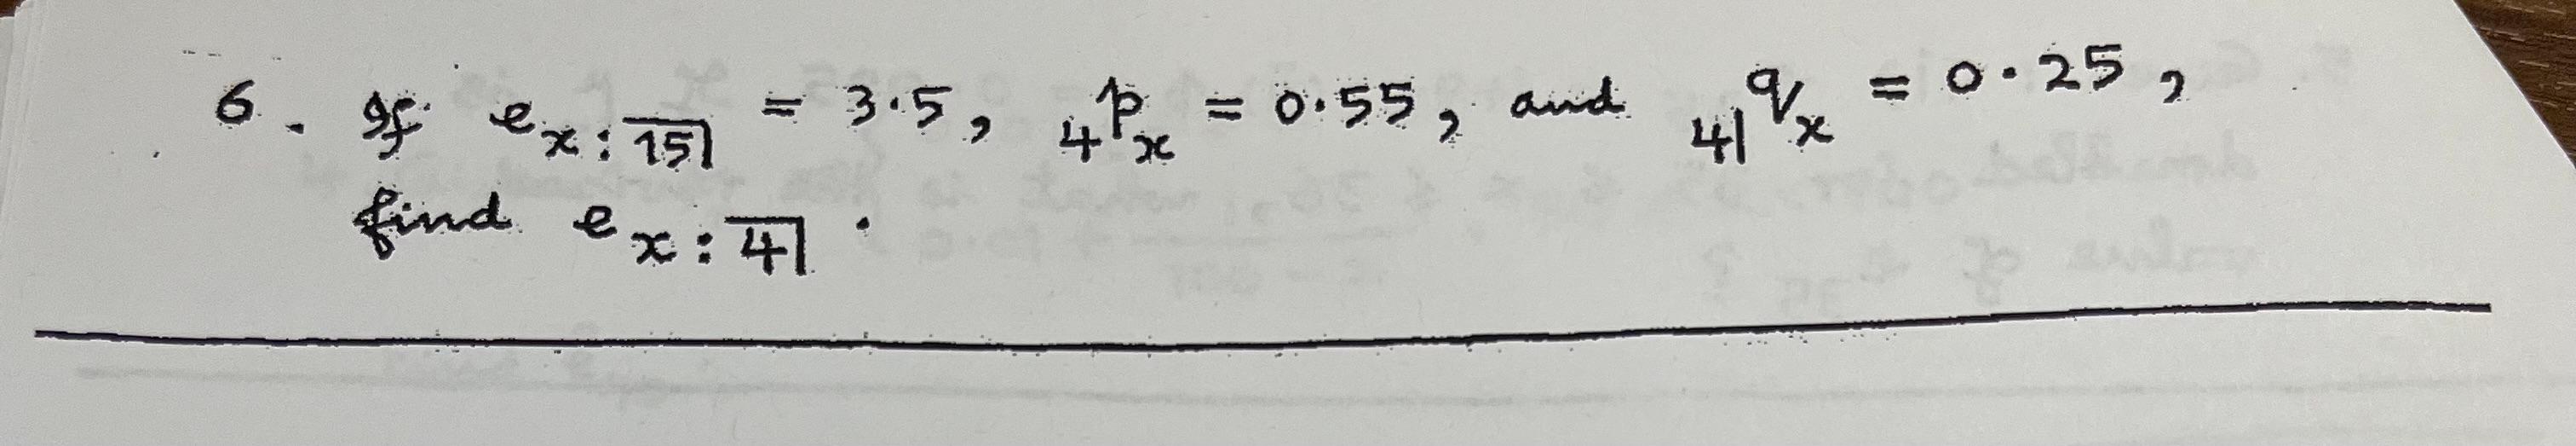 6. If e_{x:\overline{15|}} = 3.5, _4p_x = 0.55, and _{4|}q_x = 0.25,
find e_{x:\overline{4|}}.